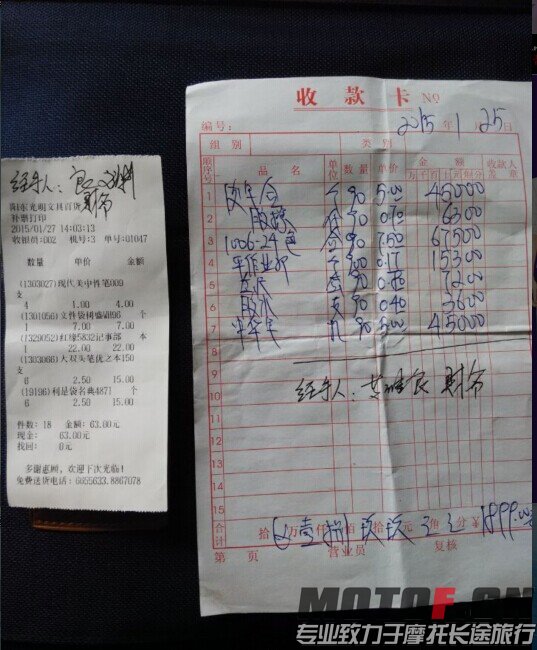 经手人:
财务
阳东光明文具百货
补票打印
2015/01/27 14:03:13
收银员:002 机号:3 单号:01047
数量 单价 金额
(1303027)现代美中性笔009
支
4 1.00 4.00
(1301056)文件袋树盛磁96 个
1 7.00 7.00
(1329052)红缘5832记事部 本
1 22.00 22.00
(1303066)大双头笔优之本150
支
6 2.50 15.00
(19196)利是袋名典4871 个
6 2.50 15.00
件数: 18 金额: 63.00元
现金: 63.00元
找回: 0元
多谢惠顾,欢迎下次光临!
免费送货电话:6655633.8867078
收款卡 NO
编号: 2015年1月25日
组别 类别
顺序号 品名 单位 数量 单价 金额 收款人盖章
万千百十元角分
1 个 90 5.00 45000
2 90 0.70 6300
3 1006-24色 90 7.50 67500
4 100 0.17 15300
5 90 1200
6 90 0.40 3600
7 90 5.00 45000
8
9
10 经手人: 财务
11
12
13
14
15
合计 拾 万壹仟捌百玖拾玖元 角 分 ¥1899.00
第 页 营业员 复核
MOTOF.CN
专业致力于摩托长途旅行